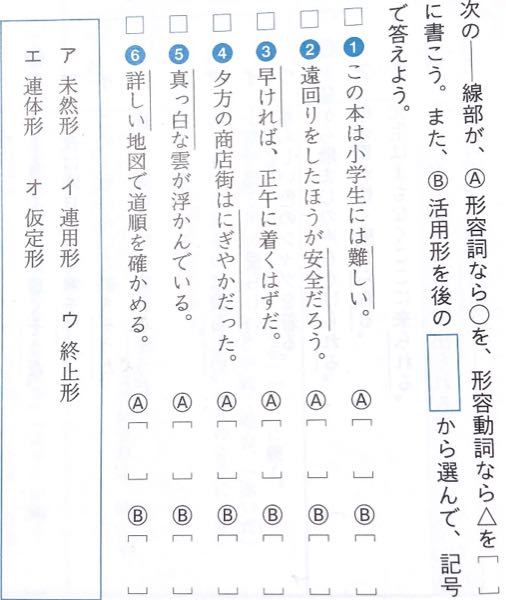 次の――線部が、Ⓐ形容詞なら○を、形容動詞なら△を［　］
に書こう。また、Ⓑ活用形を後の□から選んで、記号
で答えよう。
□❶この本は小学生には難しい。Ⓐ［　］Ⓑ［　］
□❷遠回りをしたほうが安全だろう。Ⓐ［　］Ⓑ［　］
□❸早ければ、正午に着くはずだ。Ⓐ［　］Ⓑ［　］
□❹夕方の商店街はにぎやかだった。Ⓐ［　］Ⓑ［　］
□❺真っ白な雲が浮かんでいる。Ⓐ［　］Ⓑ［　］
□❻詳しい地図で道順を確かめる。Ⓐ［　］Ⓑ［　］
ア 未然形　イ 連用形　ウ 終止形
エ 連体形　オ 仮定形